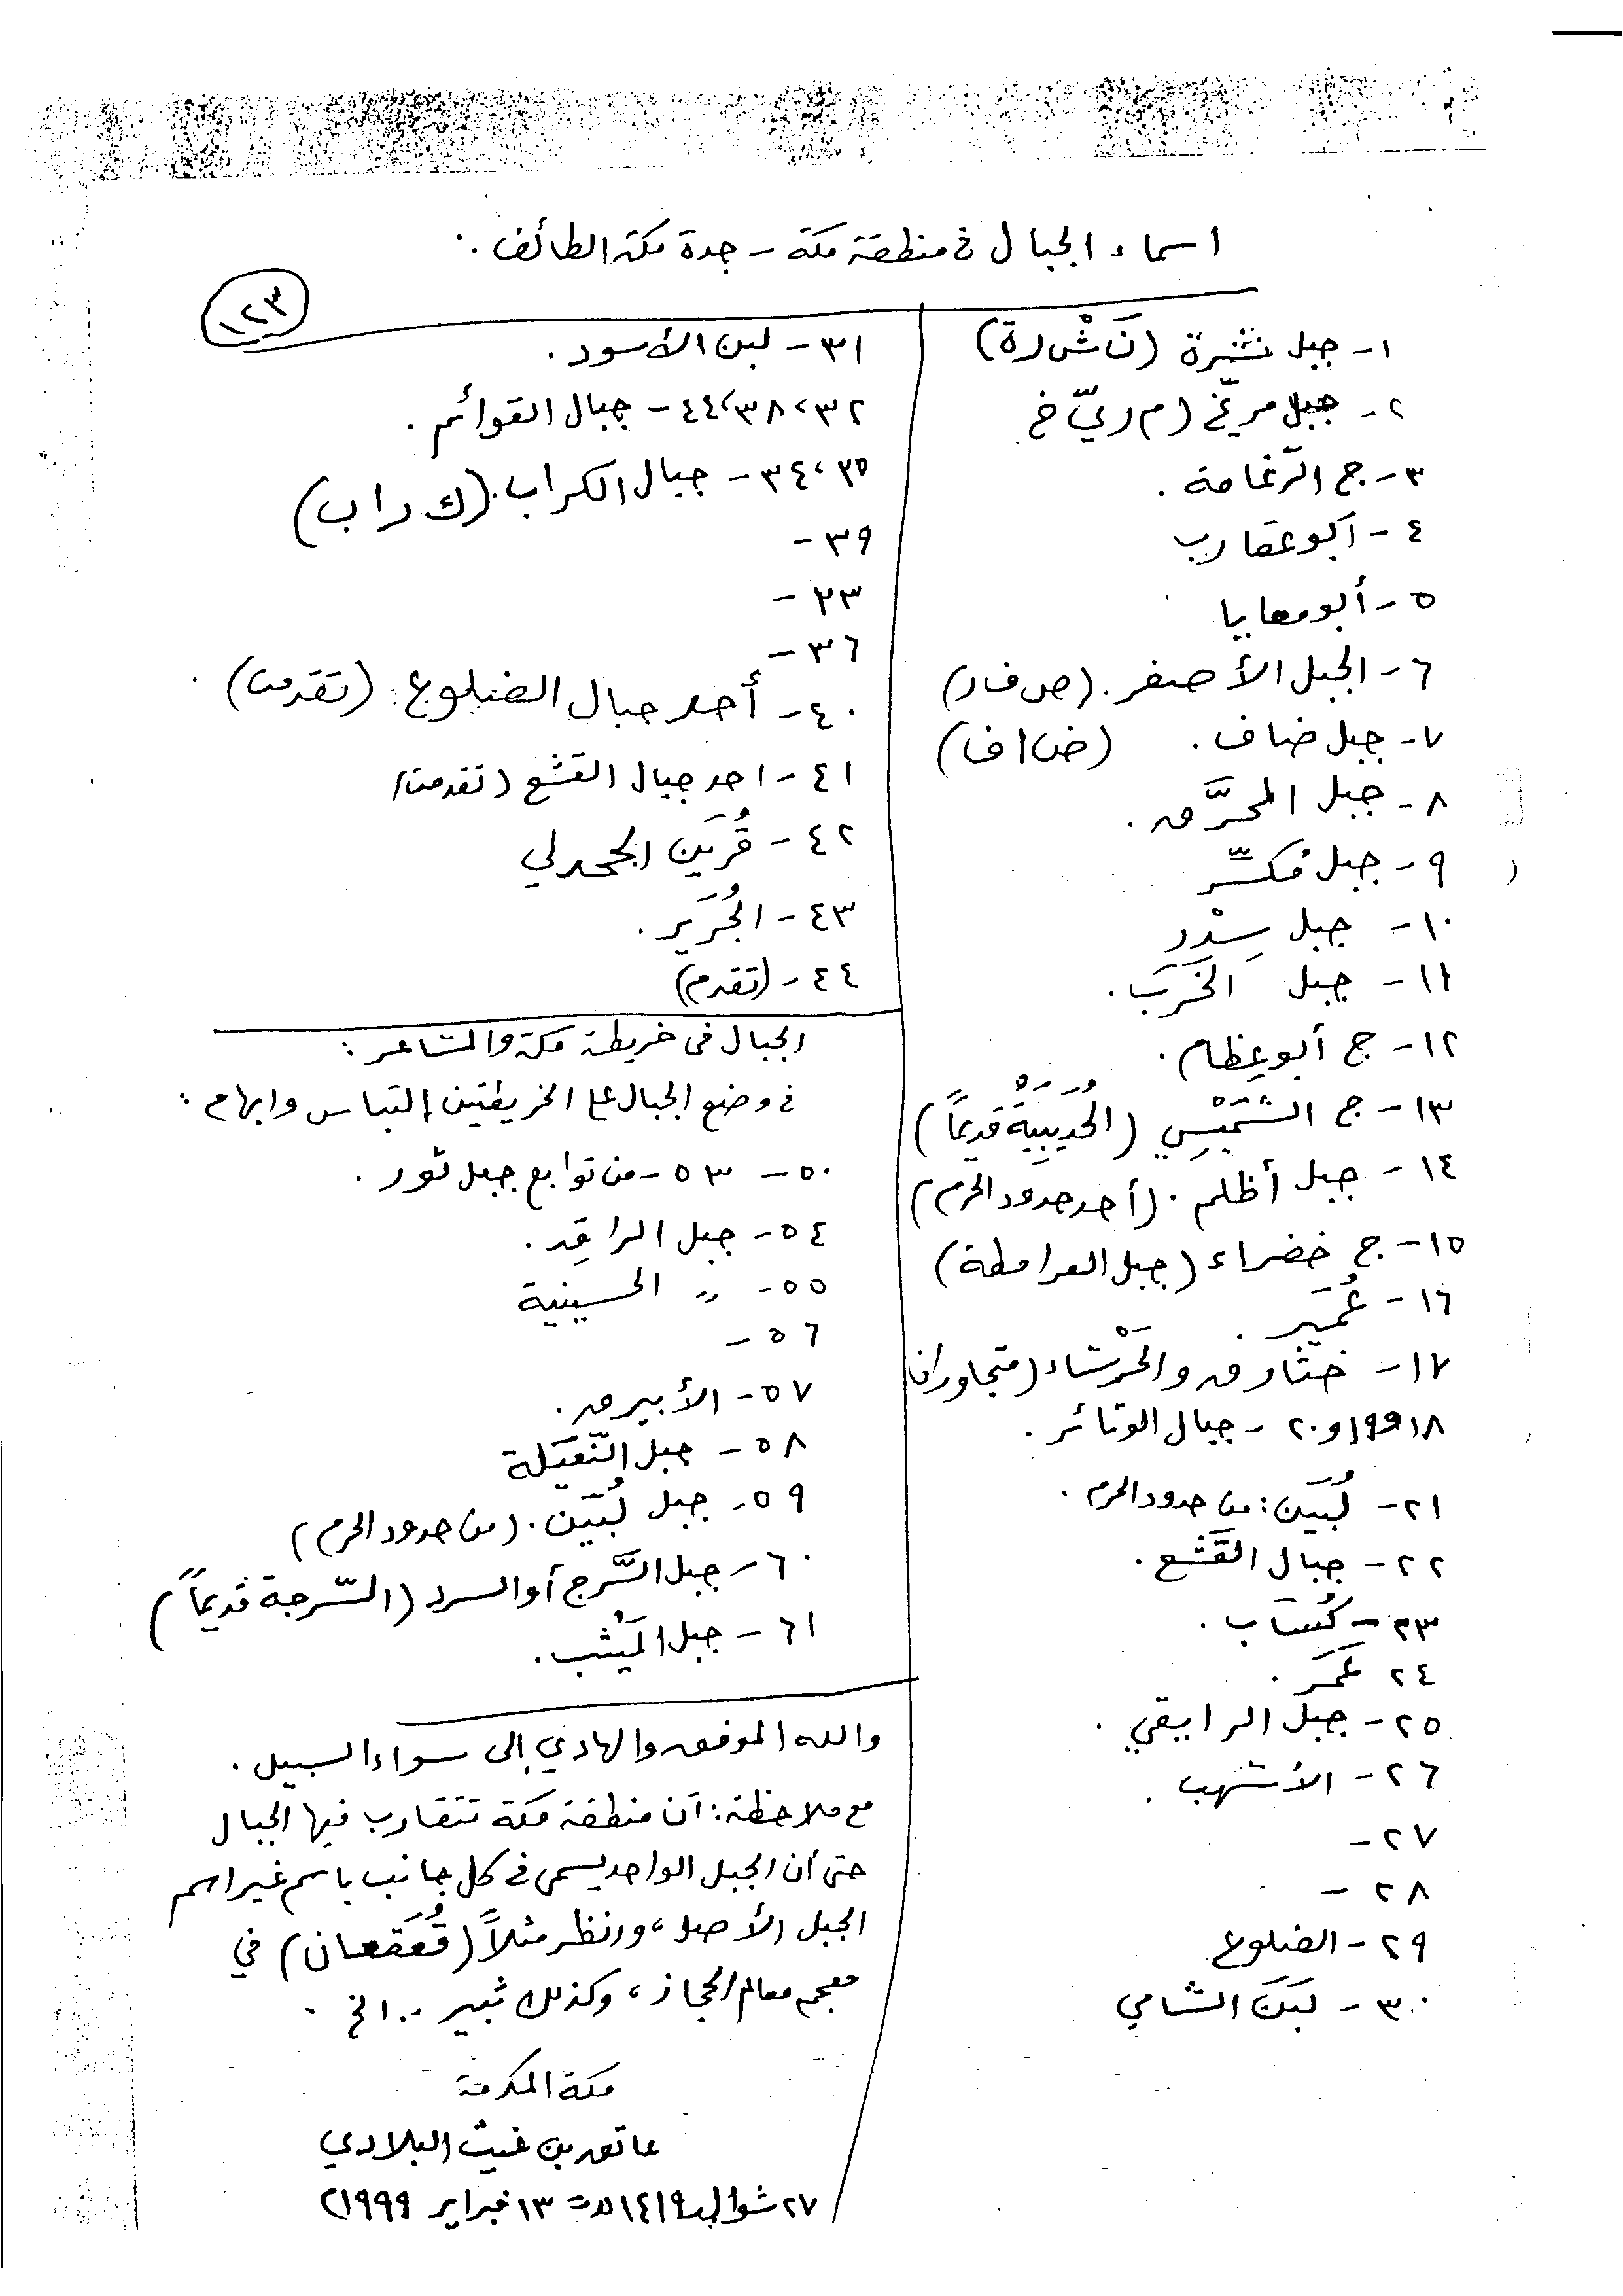 اسماء الجبال في منطقة مكة - جدة مكة الطائف .
١٢٣
١- جبل نَشْرة (نَ شْ ر ة)
٢- جبل مريّخ (م ر يّ خ
٣- ج الرّغامة .
٤- أبو عقارب
٥- أبو معايا
٦- الجبل الأصفر . (ص ف ر)
٧- جبل ضاف . (ض ا ف)
٨- جبل المحرَّق .
٩- جبل مُكسَّر
١٠- جبل سِدْر
١١- جبل الخَرَب .
١٢- ج أبو عِظام .
١٣- ج الشُمَيْسِي (الحُدَيْبِيَة قديماً)
١٤- جبل أظلم . (أحد حدود الحرم)
١٥- ج خضراء (جبل العرامطة)
١٦- عُمَير .
١٧- خثارق والخَرْشاء (متجاوران
١٨ و١٩ و٢٠ - جبال الوتائر .
٢١- لُبَين: من حدود الحرم .
٢٢- جبال القَشَع .
٢٣- كُسَاب .
٢٤ غَمَر .
٢٥- جبل الرابيقي .
٢٦- الأشهب .
٢٧-
٢٨-
٢٩- الضلوع
٣٠- لَبَن الشامي
٣١- لبن الأسود .
٣٢، ٣٨، ٤٤- جبال القوائم .
٣٥، ٣٤- جبال الكراب . (ك ر ا ب)
٣٩-
٣٣-
٣٦-
٤٠- أحد جبال الضلوع: (تقدمت) .
٤١- احد جبال القشع (تقدمت)
٤٢- قُرَين الجحدلي
٤٣- الجُرَير .
٤٤- (تقدم)
الجبال في خريطة مكة والمشاعر :
في وضع الجبال على الخريطتين إلتباس وابهام :
٥٠- ٥٣- من توابع جبل ثَور .
٥٤- جبل الراقِد .
٥٥- 〃 الحسينية
٥٦-
٥٧- الأبيرق .
٥٨- جبل النَّقَيلة
٥٩- جبل لُبَين . (من حدود الحرم)
٦٠- جبل السَّرج أو السرد (السّرجة قديماً)
٦١- جبل المَيْثب .
والله الموفق والهادي إلى سواء السبيل .
مع ملاحظة: أن منطقة مكة تتقارب فيها الجبال
حتى أن الجبل الواحد يسمى في كل جانب باسم غير اسم
الجبل الأصل، وانظر مثلاً (قُعَقعان) في
معجم معالم الحجاز، وكذلك ثبير .. الخ .
مكة المكرمة
عاتق بن غيث البلادي
٢٧ شوال ١٤١٩ه = ١٣ فبراير ١٩٩٩م